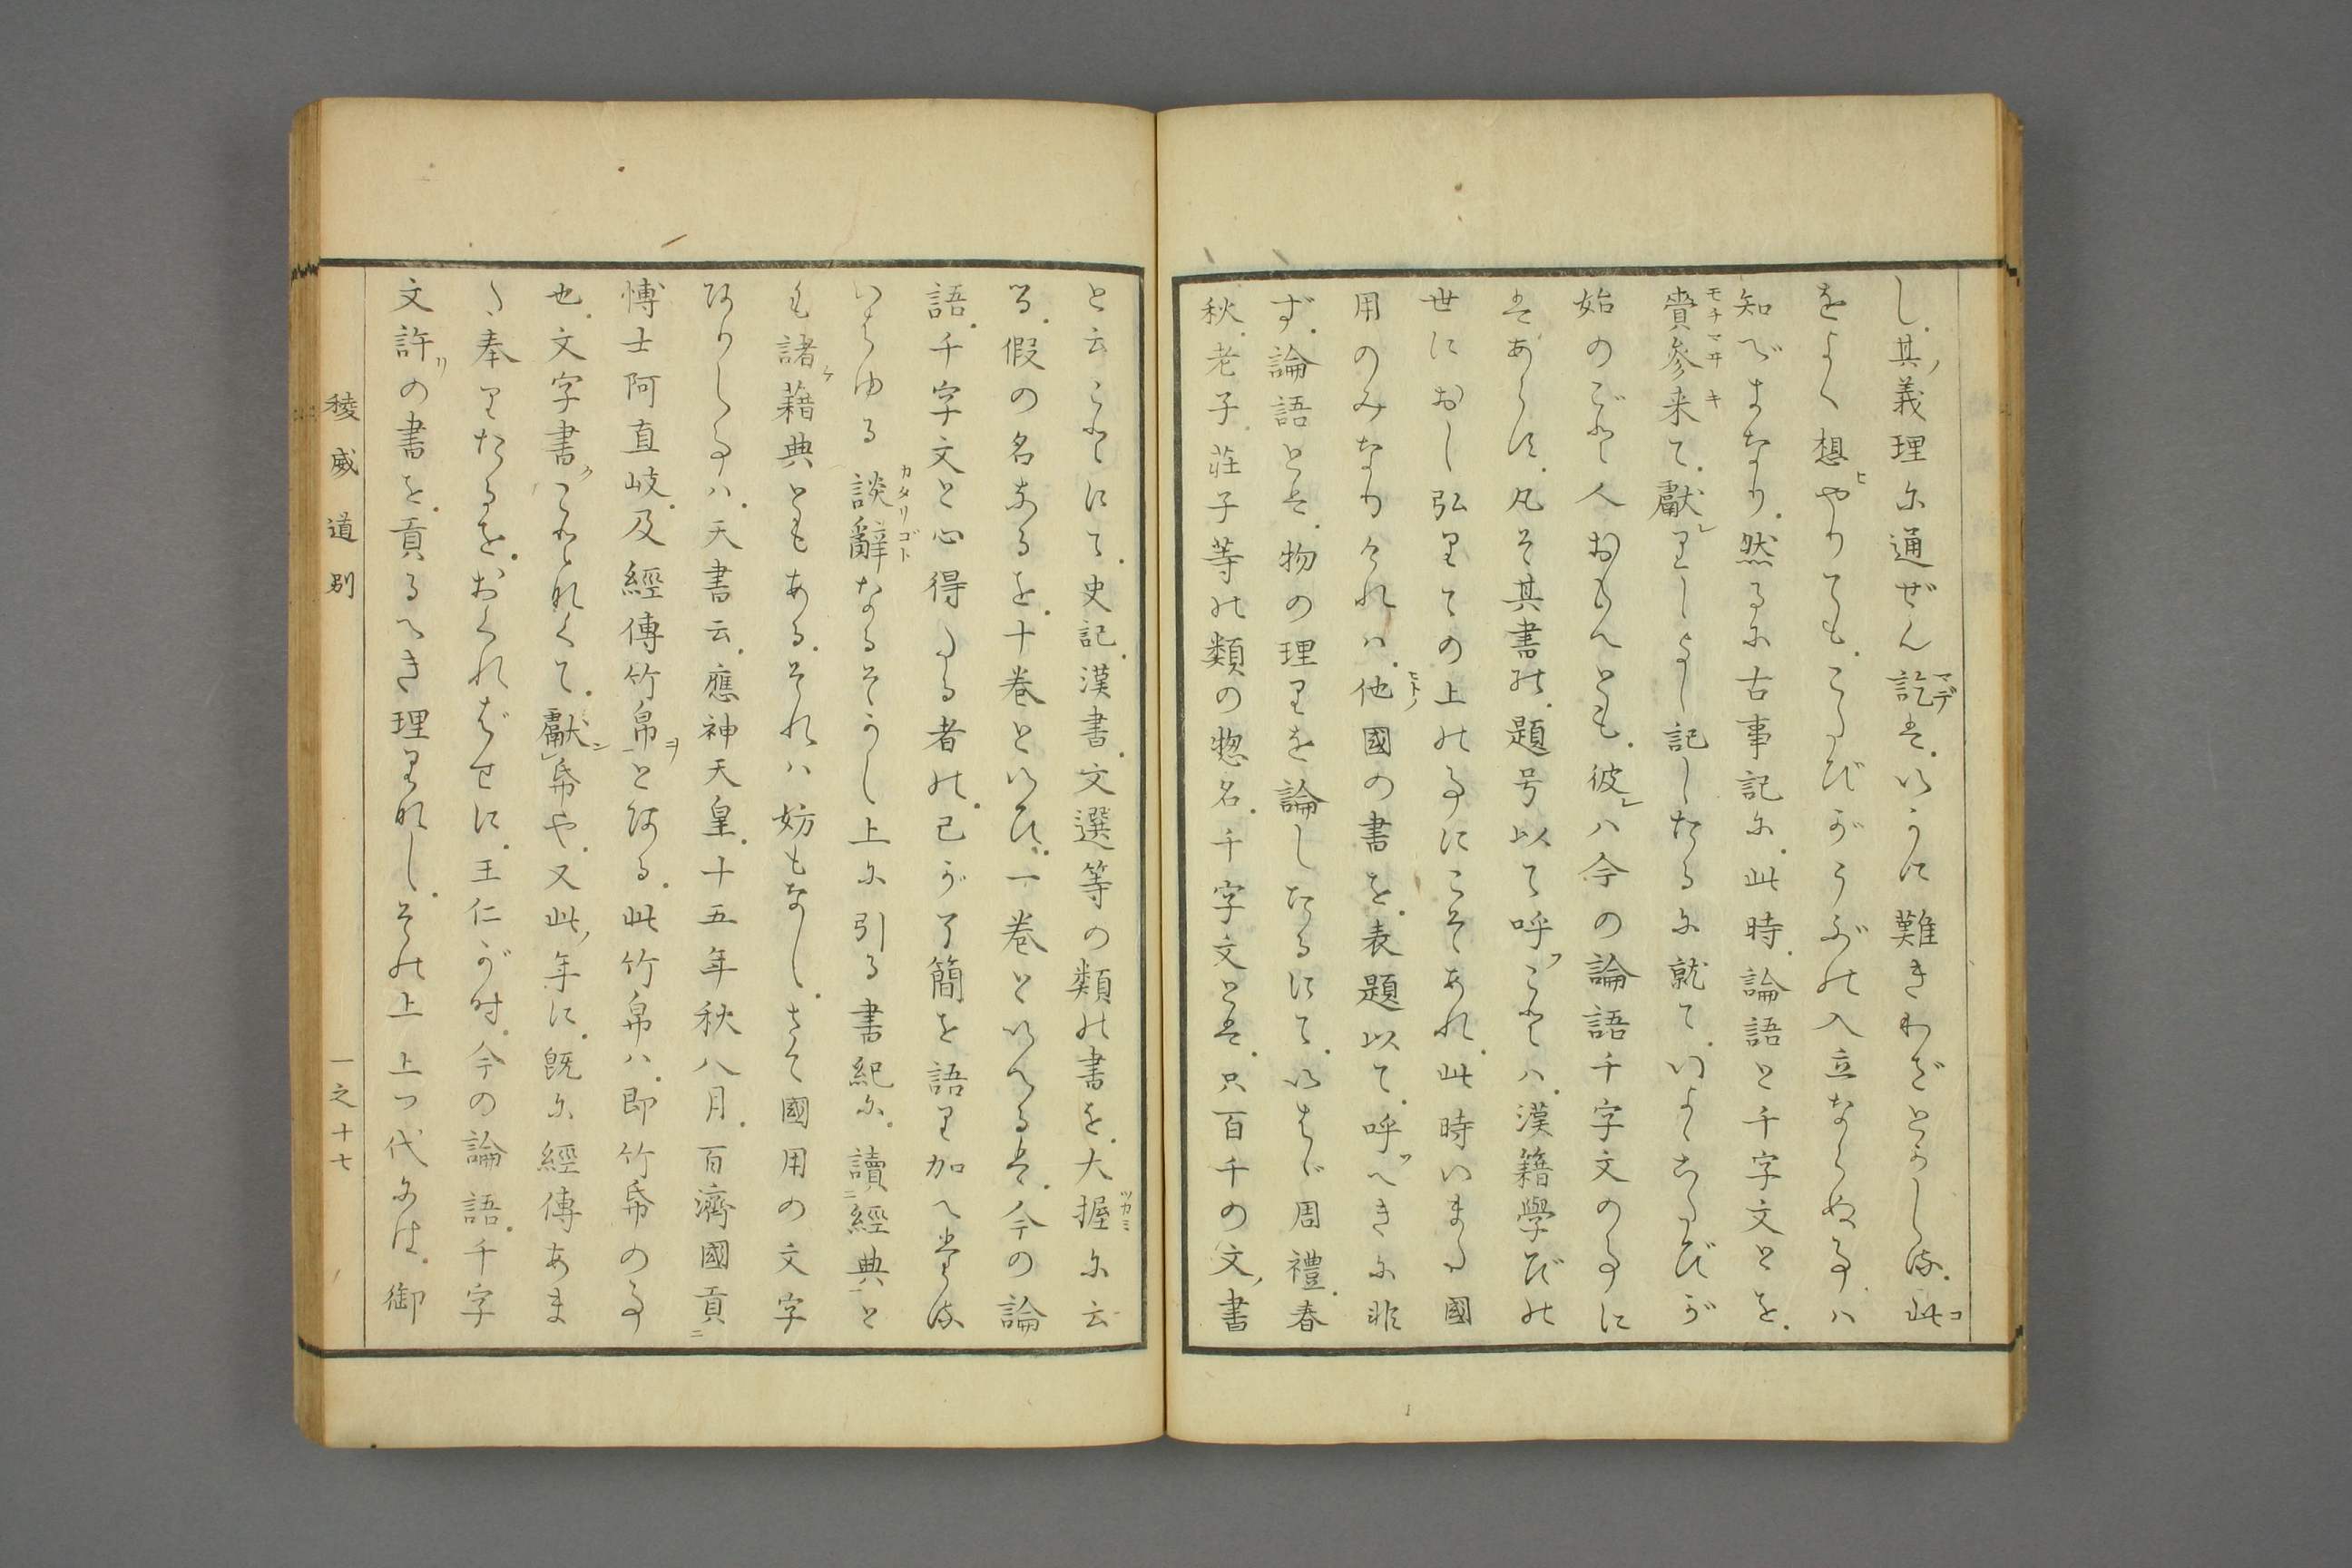 し其ノ義理尓通ぜん訖マデそいうに難きわざとうし此コ
をよく想ヒやりても
知べまなり然る尓古事記尓此時論語と千字文とを
賷モチ参マヰ来キて獻レりしよし記したる尓就ていよ
始のごと人おもへとも彼レハ今の論語千字文の事に
はあらす凡そ其書の題号以て呼フことハ漢籍學びの
世におし弘りての上の事にこそあれ此時いまた國
用のみなりけれハ他ヒトノ國の書を表題以て呼フへき尓非
ず論語とは物の理りを論したるにていはゞ周禮春
秋老子莊子等の類の惣名千字文とは只百千の文ノ書
と云ことにて史記漢書文選等の類の書を大握ツカミ尓云
る假の名なるを十巻といひ一巻といへるは今の論
語千字文と心得たる者の已が了簡を語り加へ
いはゆる談辭カタリゴトなるそかし上尓引る書紀尓讀ニ經典一と
も諸ケ藉典ともあるそれハ妨もなしさて國用の文字
ありし事ハ天書云應神天皇十五年秋八月百濟國貢ニ
愽士阿直岐及經傳竹帛ヲ一とある此竹帛ハ即竹帋の事
也文字書クことなくて獻ンレ帋や又此ノ年に既尓經傳あま
た奉りたるをおくればせに王仁が时今の論語千字
文許リの書を貢るへき理りなしその上上つ代には御
稜威道別 一之十七